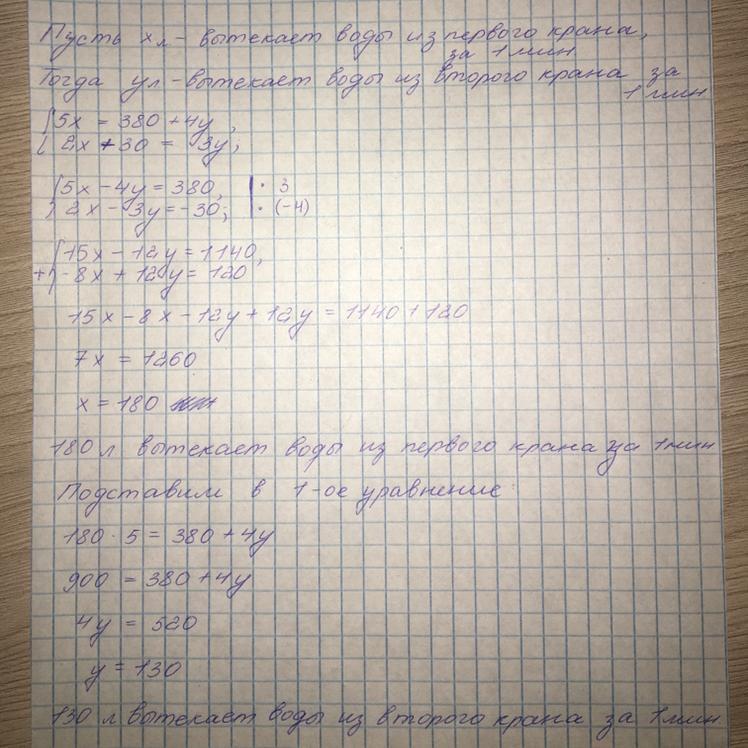 Пусть x л - вытекает воды из первого крана,
за 1 мин.
Тогда y л - вытекает воды из второго крана за
1 мин
{5x = 380 + 4y,
{2x + 30 = 3y;
{5x - 4y = 380, | · 3
{2x - 3y = -30; | · (-4)
{15x - 12y = 1140,
+{-8x + 12y = 120
15x - 8x - 12y + 12y = 1140 + 120
7x = 1260
x = 180
180 л вытекает воды из первого крана за 1 мин
Подставим в 1-ое уравнение
180 · 5 = 380 + 4y
900 = 380 + 4y
4y = 520
y = 130
130 л вытекает воды из второго крана за 1 мин